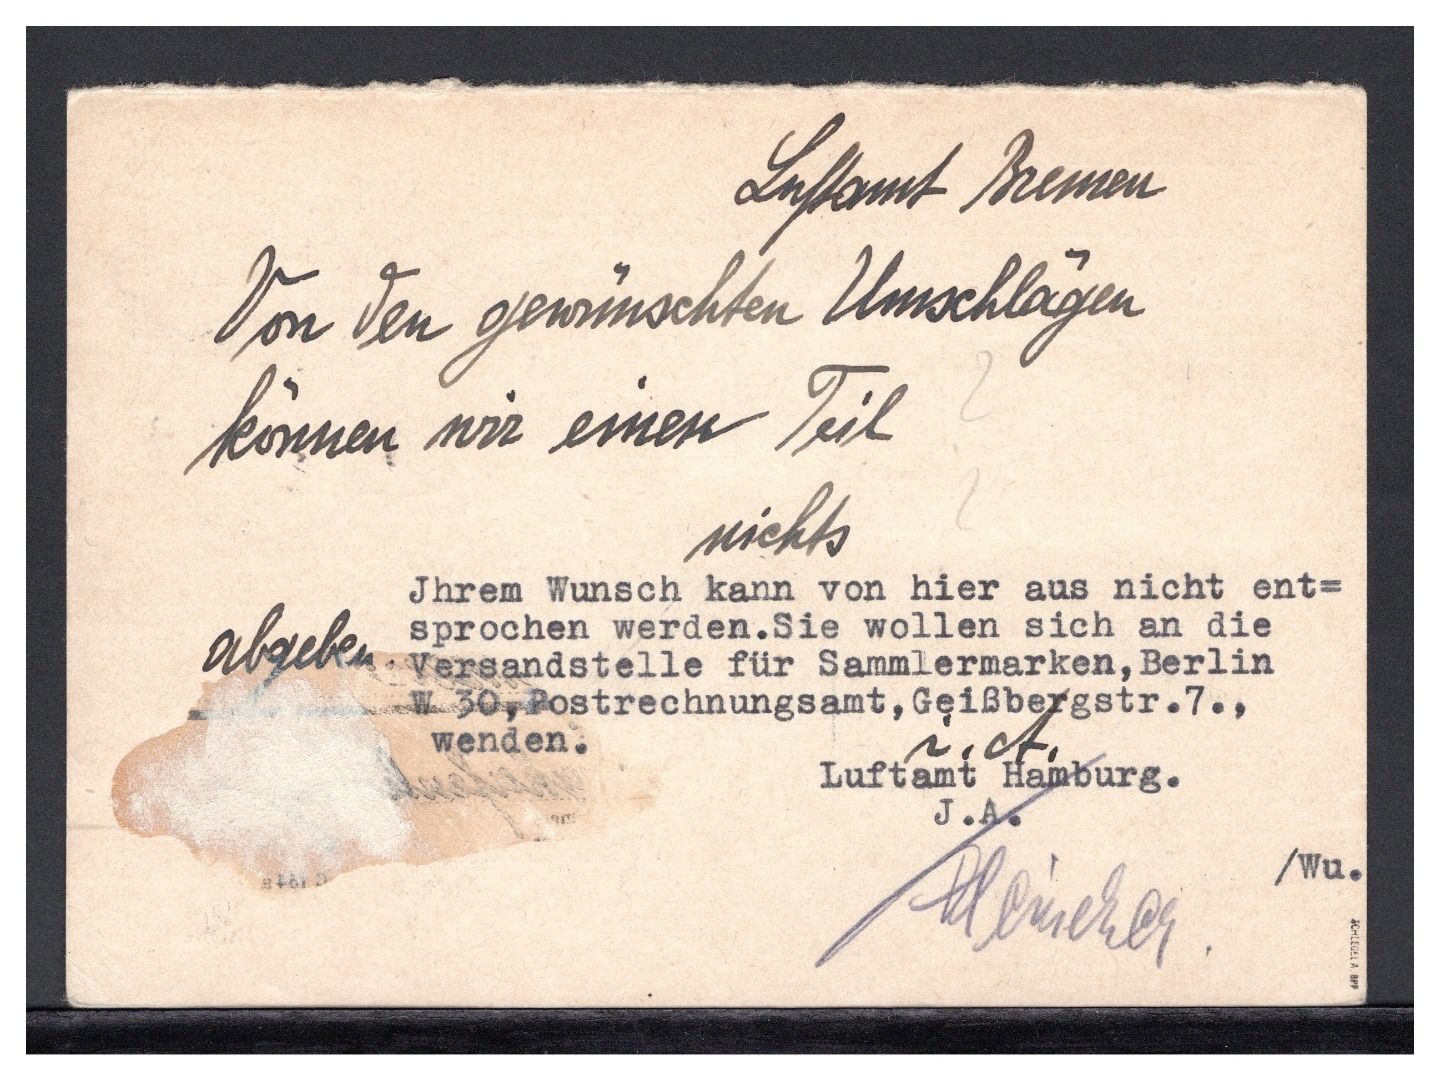 Luftamt Bremen
Von den gewünschten Umschlägen
können wir einen Teil
nichts
abgeben.
Jhrem Wunsch kann von hier aus nicht ent=
sprochen werden.Sie wollen sich an die
Versandstelle für Sammlermarken,Berlin
W 30,Postrechnungsamt,Geißbergstr.7.,
wenden.
i.A.
Luftamt Hamburg.
J.A.
/Wu.
SCHLEGEL A BPP